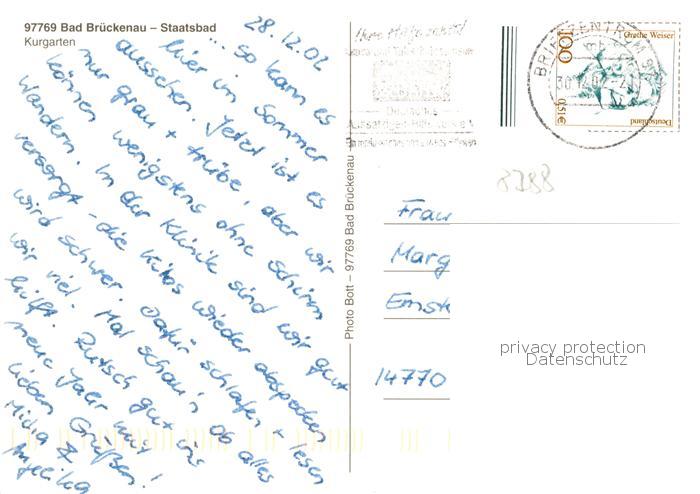 97769 Bad Brückenau – Staatsbad
Kurgarten
28.12.02
... so kann es
hier im Sommer
aussehen. Jetzt ist es
nur grau + trübe, aber wir
können wenigstens ohne Schirm
wandern. In der Klinik sind wir gut
versorgt - die Kilos wieder abspecken
wird schwer. Dafür schlafen + lesen
wir viel. Mal schau'n ob alles
hilft. Rutsch gut ins
neue Jahr mit
lieben Grüßen!
Micha &
Angelika
Photo Bott – 97769 Bad Brückenau
BRIEFZENTRUM
Grethe Weiser
100
0,51€
Deutschland
8788
Frau
Marg
Ernst
14770
privacy protection
Datenschutz